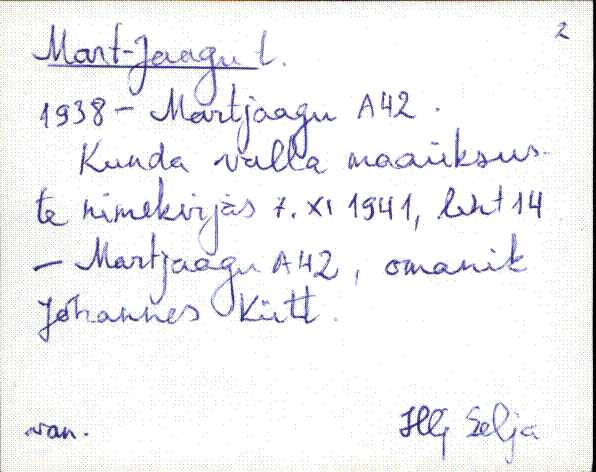 2
Mart-Jaagu t.
1938 - Martjaagu A42.
Kunda valla maaüksus-
te nimekirjas 7. XI 1941, leht 14
- Martjaagu A42, omanik
Johannes Kütt.
van. Selja